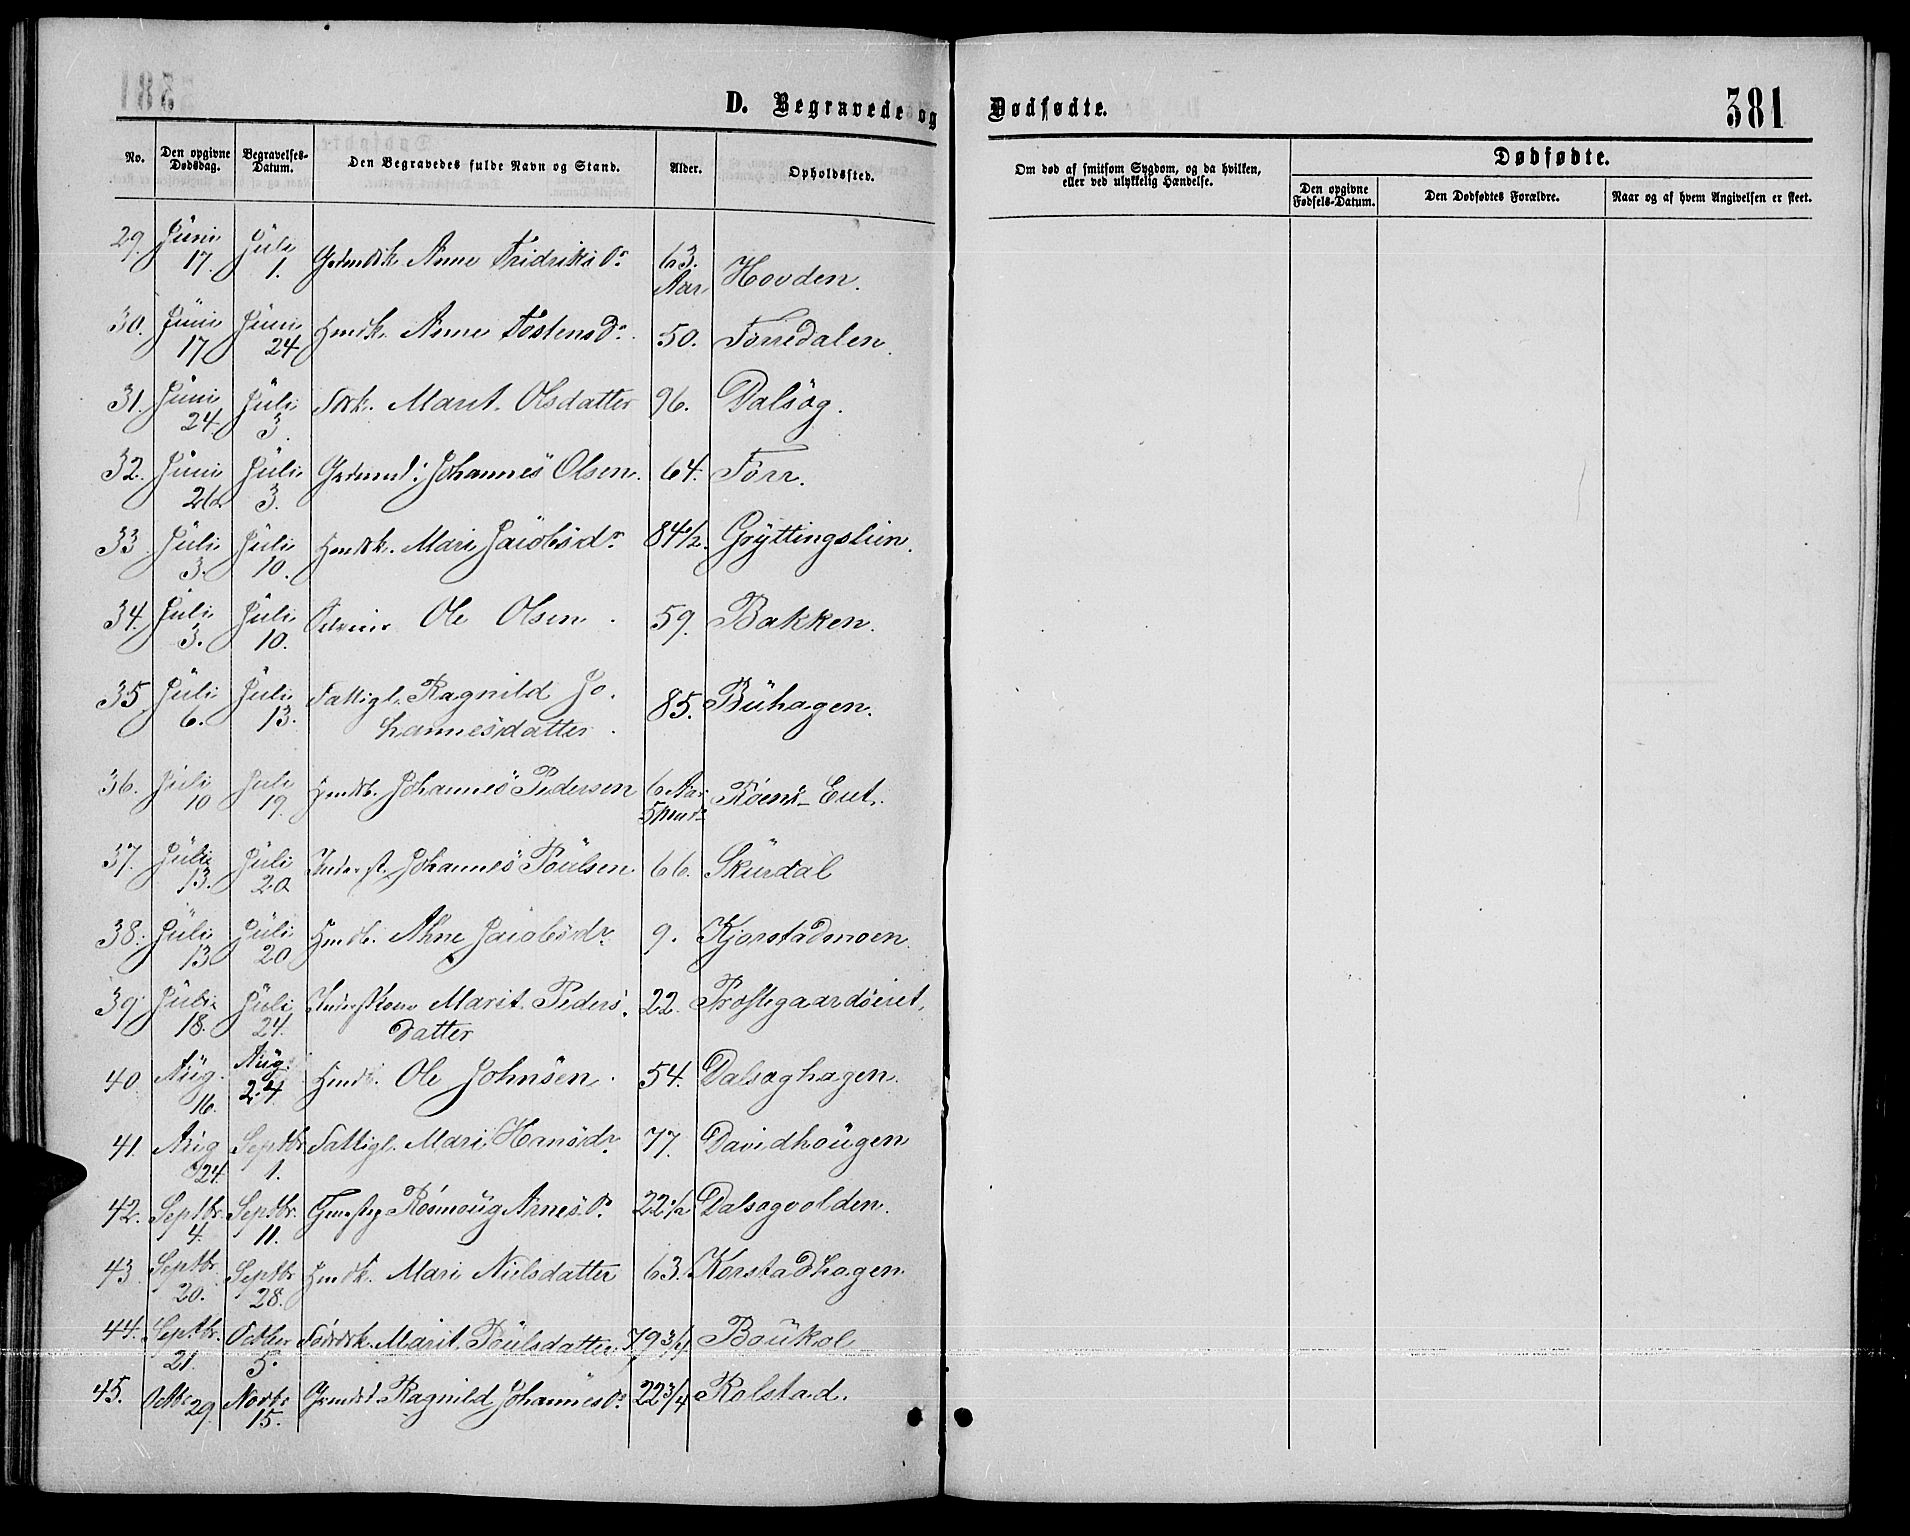 D. Begravede og Dødfødte. 381
No. Den opgivne Dødsdag. Begravelses-Datum. Den Begravedes fulde Navn og Stand. Alder. Opholdssted. Om død af smitsom Sygdom, og da hvilken, eller ved ulykkelig Hændelse. Dødfødte.
Den opgivne Fødsels-Datum. Den Dødfødtes Forældre. Naar og af hvem Angivelsen er skeet.
29. Juni 17. Juli 1. Anne Fridriks Dr 63. Aar Hovden.
30. Juni 17 Juni 24 Anne Tostens Dr 50. Tørredalen
31. Juni 24. Juli 3. Marit Olsdatter 96. Dalsøg.
32. Juni 26 Juli 3. Johannes Olsen. 64. Tørr.
33 Juli 3. Juli 10. Mari Jacobsdr 84½. Gryttingslien.
34. Juli 3. Juli 10. Ole Olsen. 59. Bakken.
35 Juli 6. Juli 13. Fattigl. Ragnild Jo-
hannesdatter. 85. Buhagen.
36. Juli 10 Juli 19. Johannes Pedersen 6 Aar 5 Mnd Eiet.
37. Juli 13. Juli 20 Inderst. Johannes Poulsen 66. Skurdal
38. Juli 13 Juli 20 Jacobsdr 9. Kjorstadmoen.
39 Juli 18. Juli 24. Marit Peders-
datter 22. Prostegaardseiet.
40 Aug. 16. Aug. 24 Ole Johnsen. 54. Dalsøghagen.
41. Aug 24 Septbr 1. Fattigl. Mari Hansdr 77. Davidhougen
42. Septbr. 4. Septbr. 11. Rønnoug Arnes Dr 22½ Dalsøgvolden.
43. Septbr. 20. Septbr 28. Mari Nielsdatter 63. Korstadhagen
44. Septbr. 21. October 5. Marit Poulsdatter 79¾ Boukol
45. Octbr 29 Novbr 15. Ragnild Johannes Dr 22¾ Rolstad.